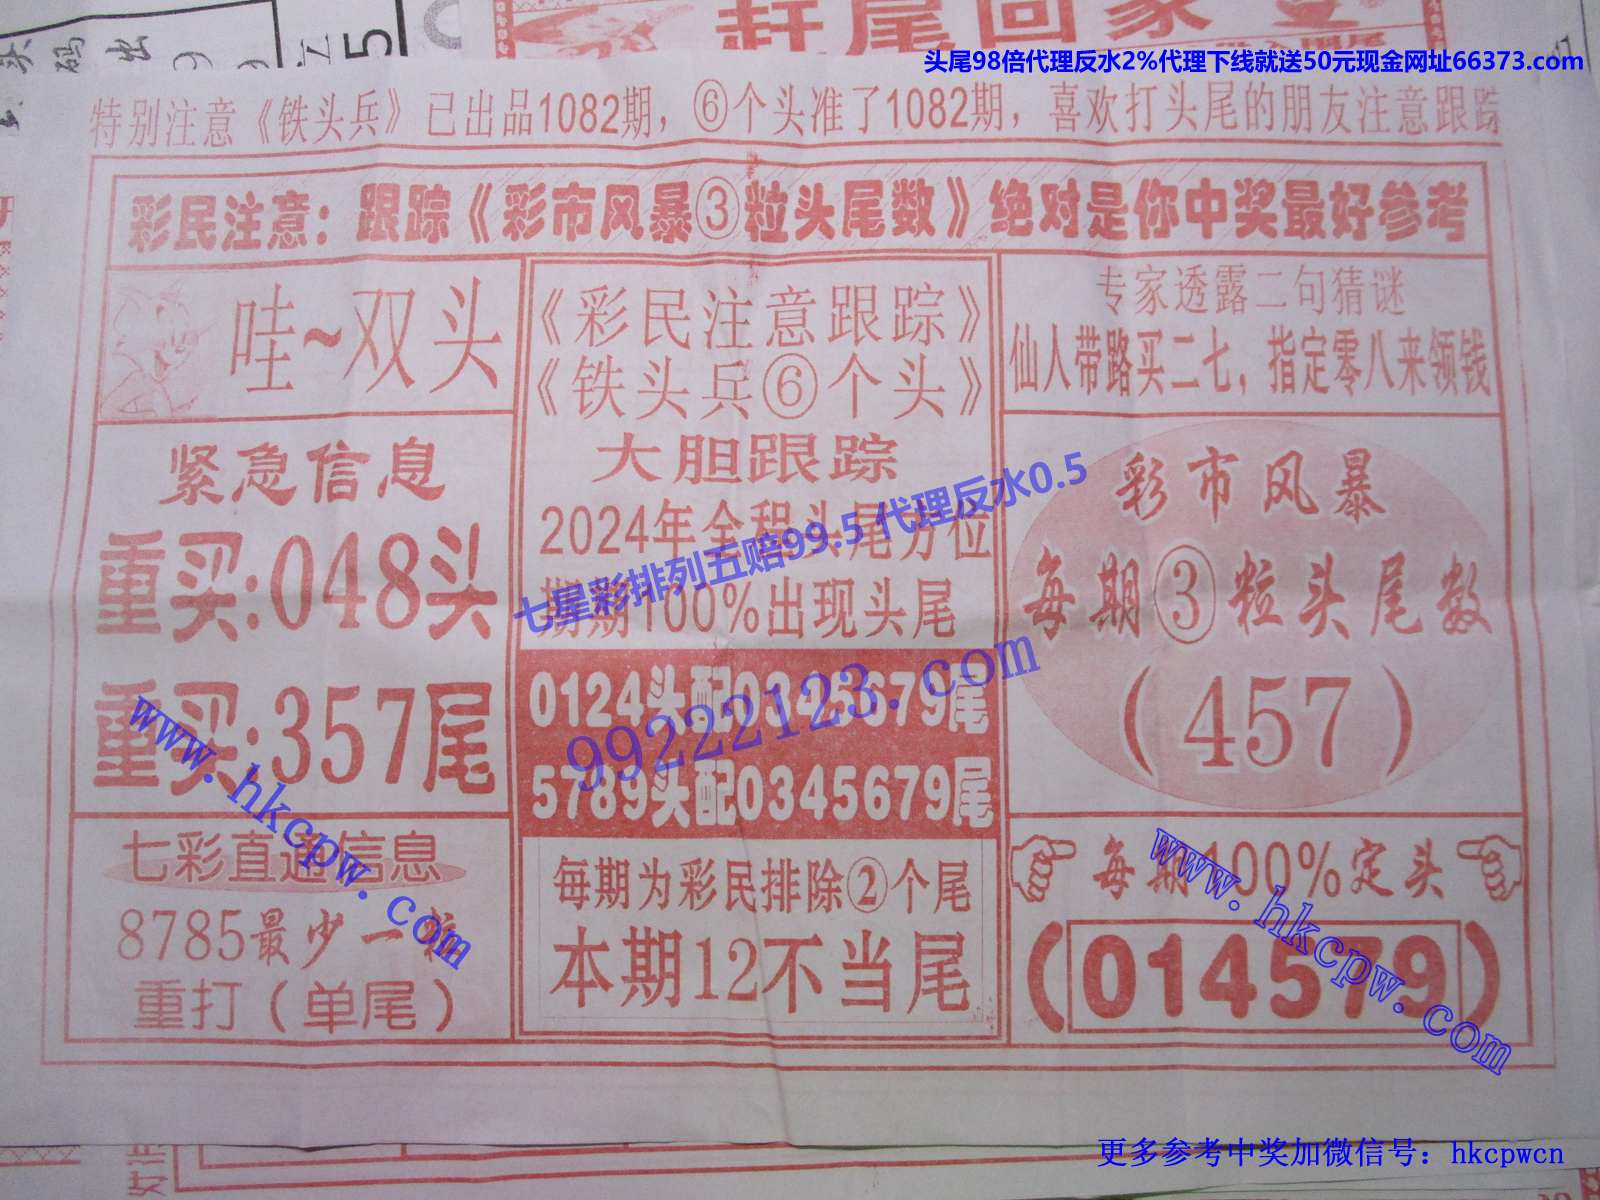 头码出
5
头尾98倍代理反水2%代理下线就送50元现金网址66373.com
特别注意《铁头兵》已出品1082期，⑥个头准了1082期，喜欢打头尾的朋友注意跟踪
彩民注意：跟踪《彩市风暴③粒头尾数》绝对是你中奖最好参考
哇~双头
紧急信息
重买:048头
重买:357尾
七彩直通信息
8785最少一粒
重打（单尾）
《彩民注意跟踪》
《铁头兵⑥个头》
大胆跟踪
2024年全程头尾方位
期期100%出现头尾
0124头配0345679尾
5789头配0345679尾
每期为彩民排除②个尾
本期12不当尾
专家透露二句猜谜
仙人带路买二七，指定零八来领钱
彩市风暴
每期③粒头尾数
（457）
每期100%定头
（014579）
七星彩排列五赔99.5 代理反水0.5
99222123.com
www.hkcpw.com
www.hkcpw.com
更多参考中奖加微信号：hkcpwcn